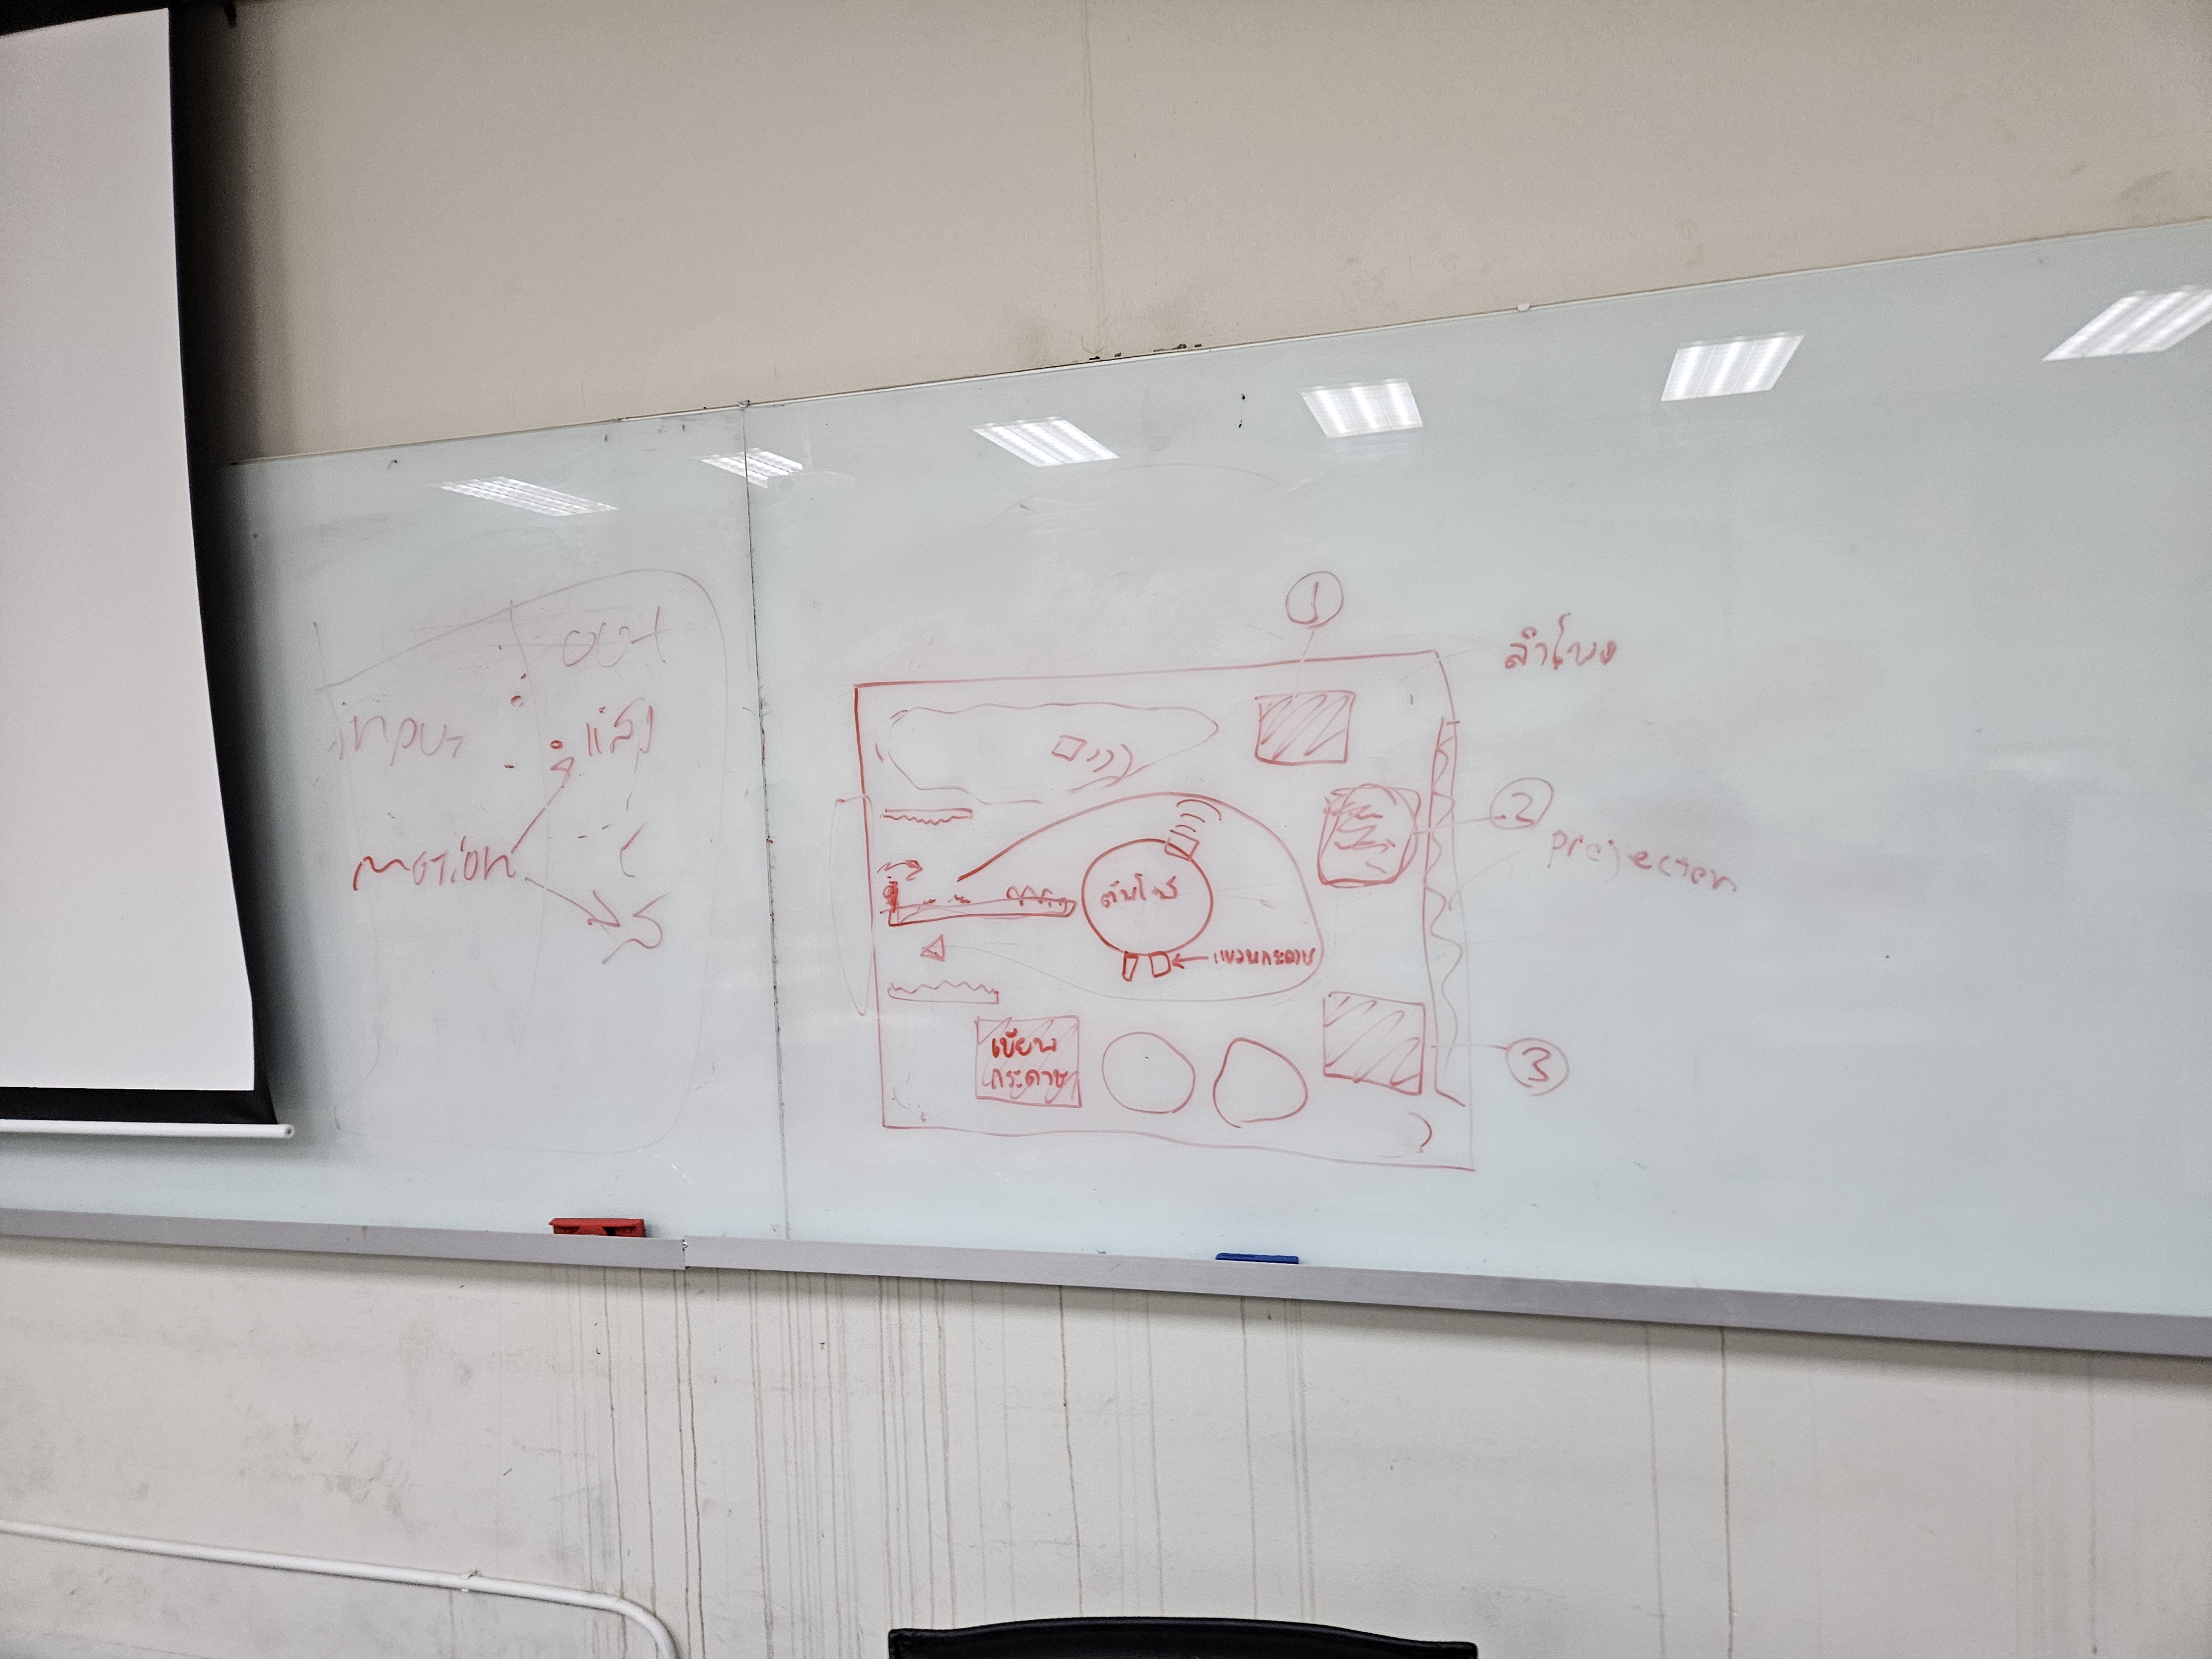 input
out
แสง
motion
1
ลำโพง
2
projector
ต้นโพธิ์
แขวนกระดาษ
เขียน
กระดาษ
3